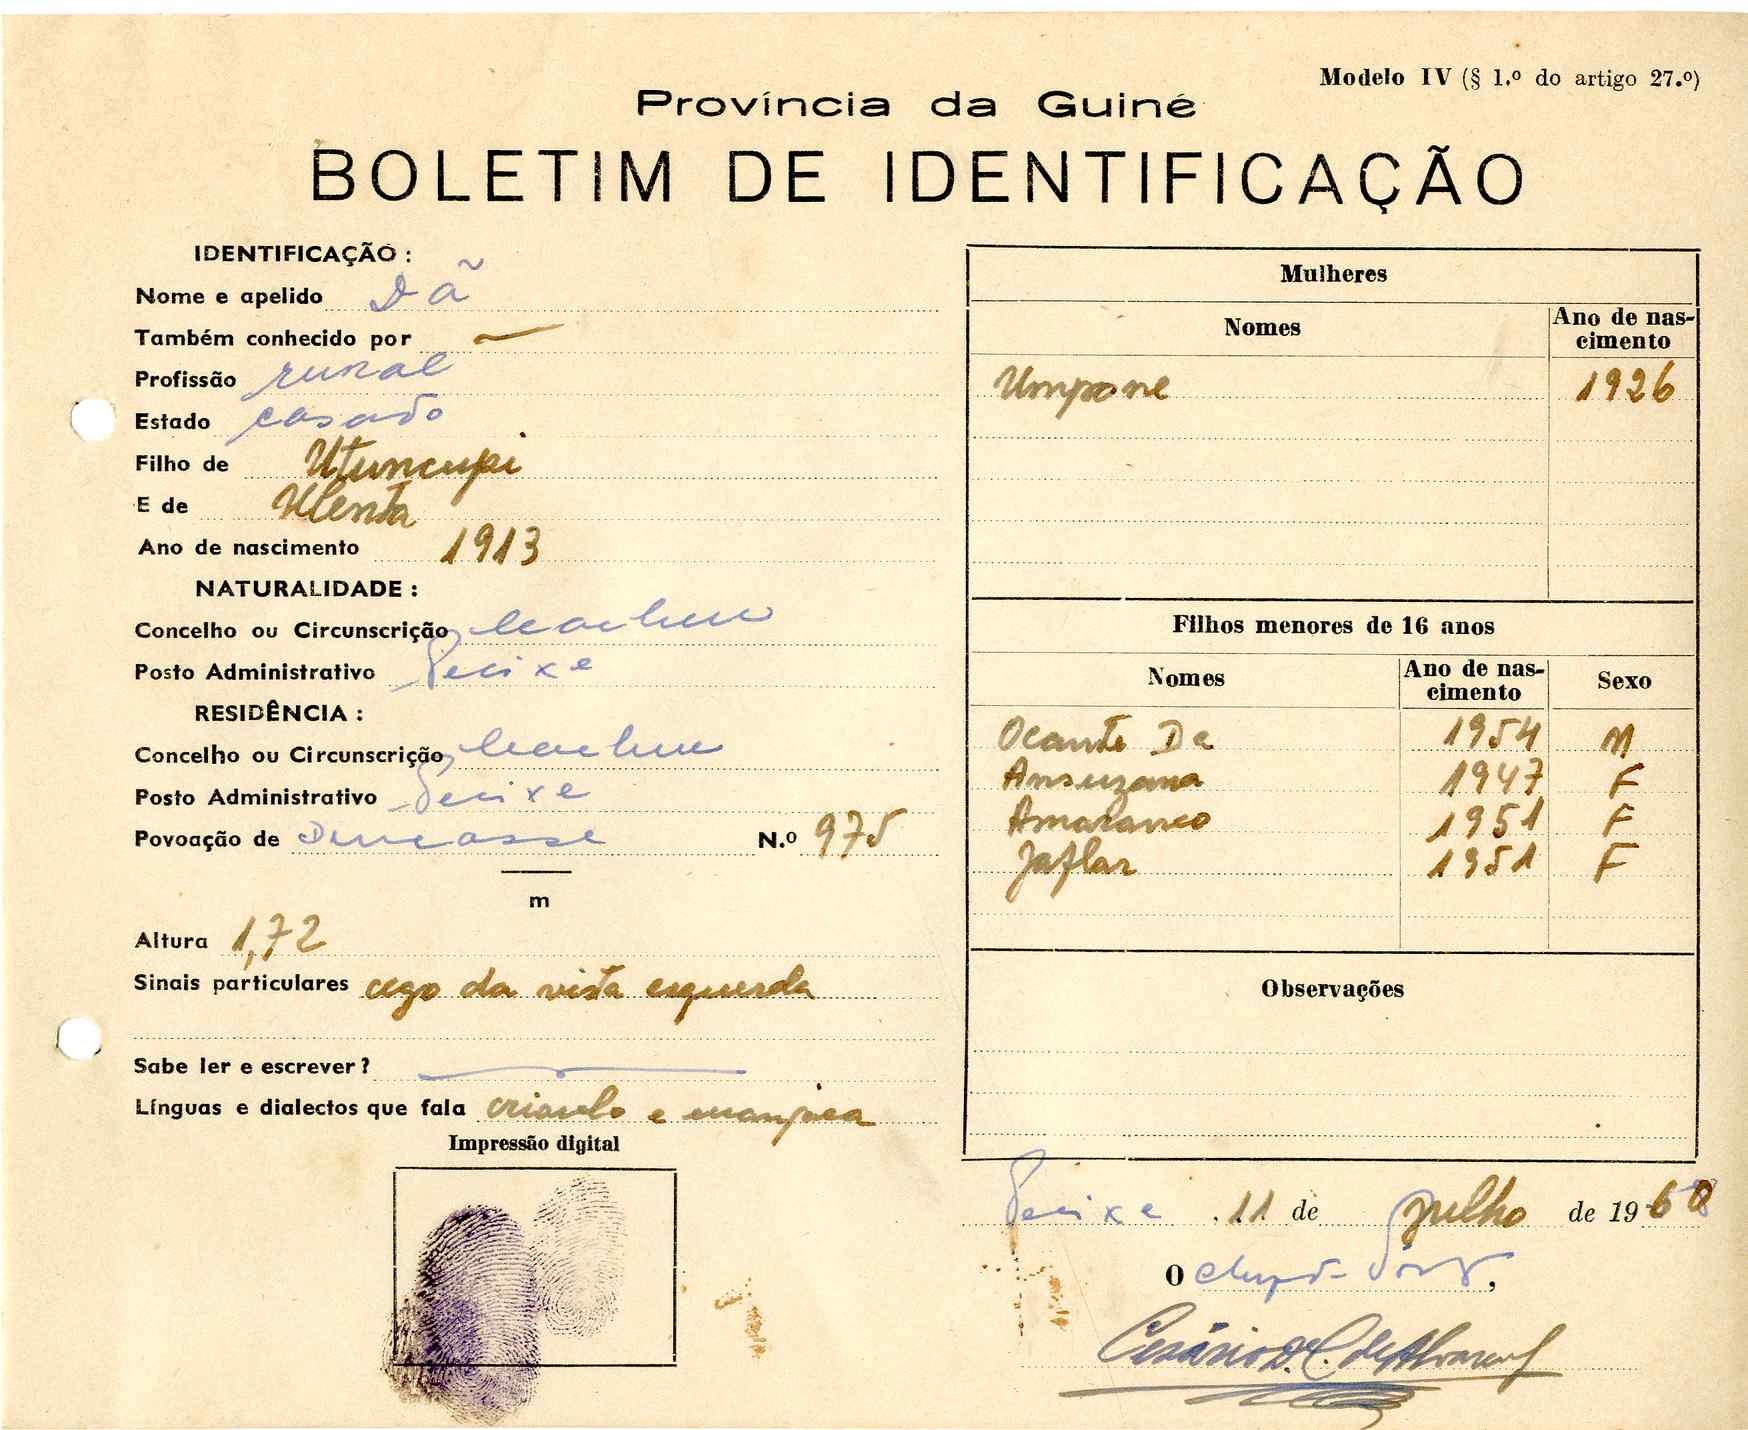 Modelo IV (§ 1.º do artigo 27.º)
Província da Guiné
BOLETIM DE IDENTIFICAÇÃO
IDENTIFICAÇÃO :
Nome e apelido Dã
Também conhecido por —
Profissão rural
Estado casado
Filho de Utuncupi
E de Ulenta
Ano de nascimento 1913
NATURALIDADE :
Concelho ou Circunscrição Cacheu
Posto Administrativo Pecixe
RESIDÊNCIA :
Concelho ou Circunscrição Cacheu
Posto Administrativo Pecixe
Povoação de N.º 975
m
Altura 1,72
Sinais particulares cego da vista esquerda
Sabe ler e escrever? —
Línguas e dialectos que fala crioulo e manjaca
Impressão digital
Mulheres
Nomes Ano de nas-
cimento
Umpone 1926
Filhos menores de 16 anos
Nomes Ano de nas-
cimento Sexo
Ocante Da 1954 M
Ansuzana 1947 F
1951 F
Jaflar 1951 F
Observações
Pecixe 11 de julho de 1960
O Chefe de Posto,
Cesário D. C. de